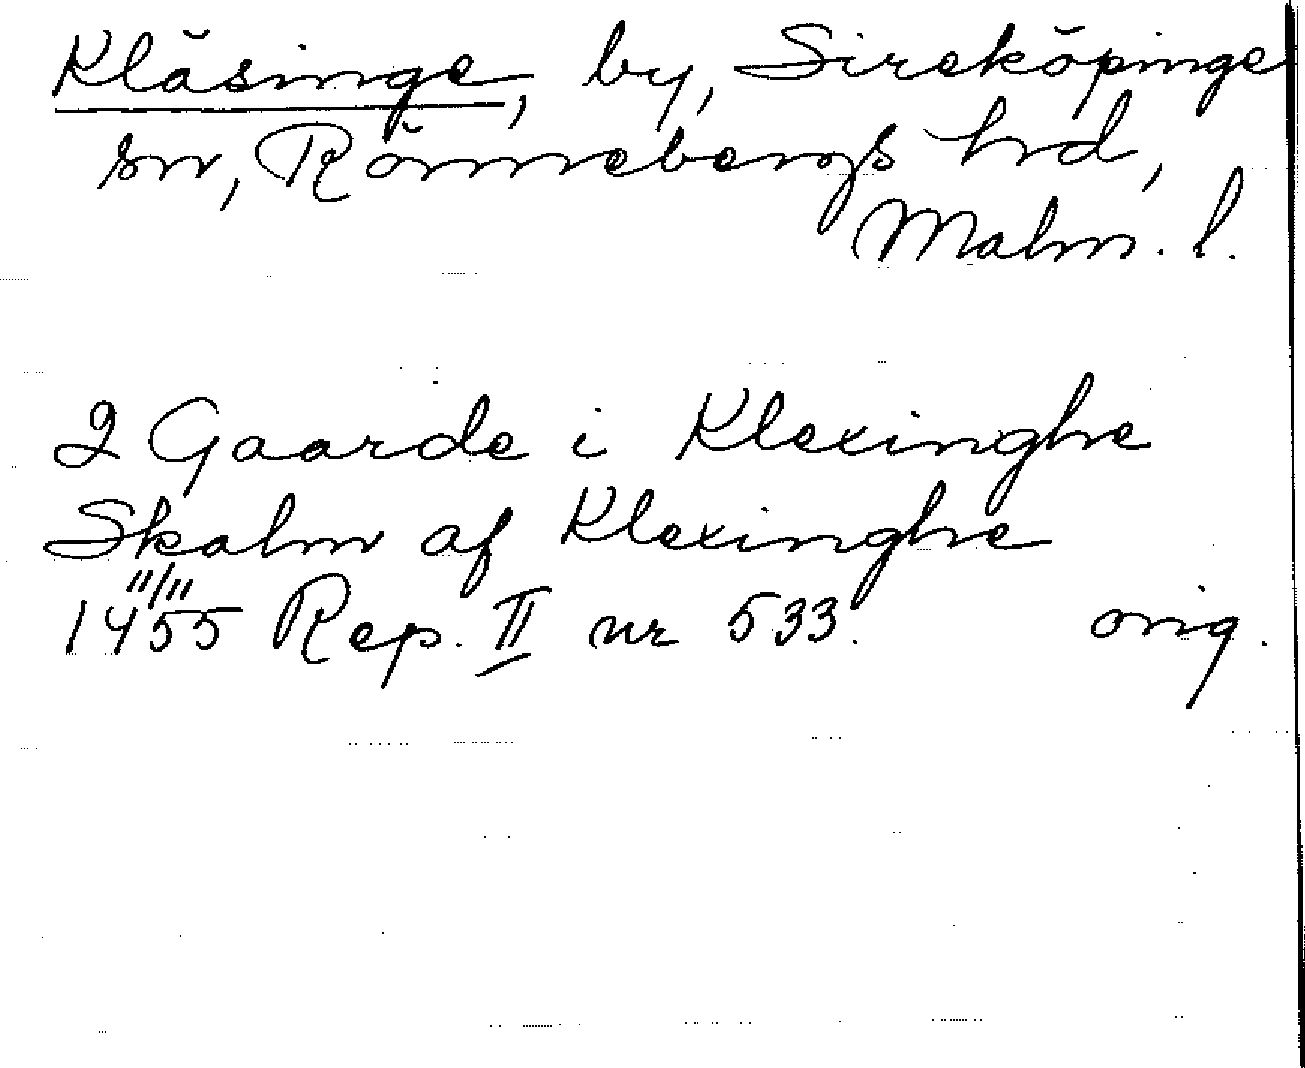 Kläsinge, by, Sireköpinge
sn, Rönnebergs hrd,
Malm. l.
2 Gaarde i Klexinghe
Skalm af Klexinghe
11/11
1455 Rep. II nr 533. orig.